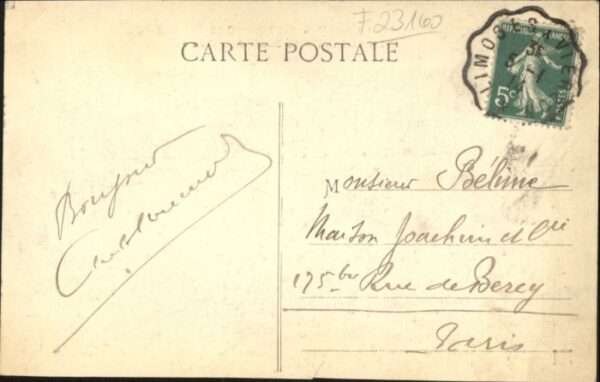 F.23160
CARTE POSTALE
5c
Bonjour
Monsieur Béline
Maison Joachim et Cie
175 bis Rue de Bercy
Paris